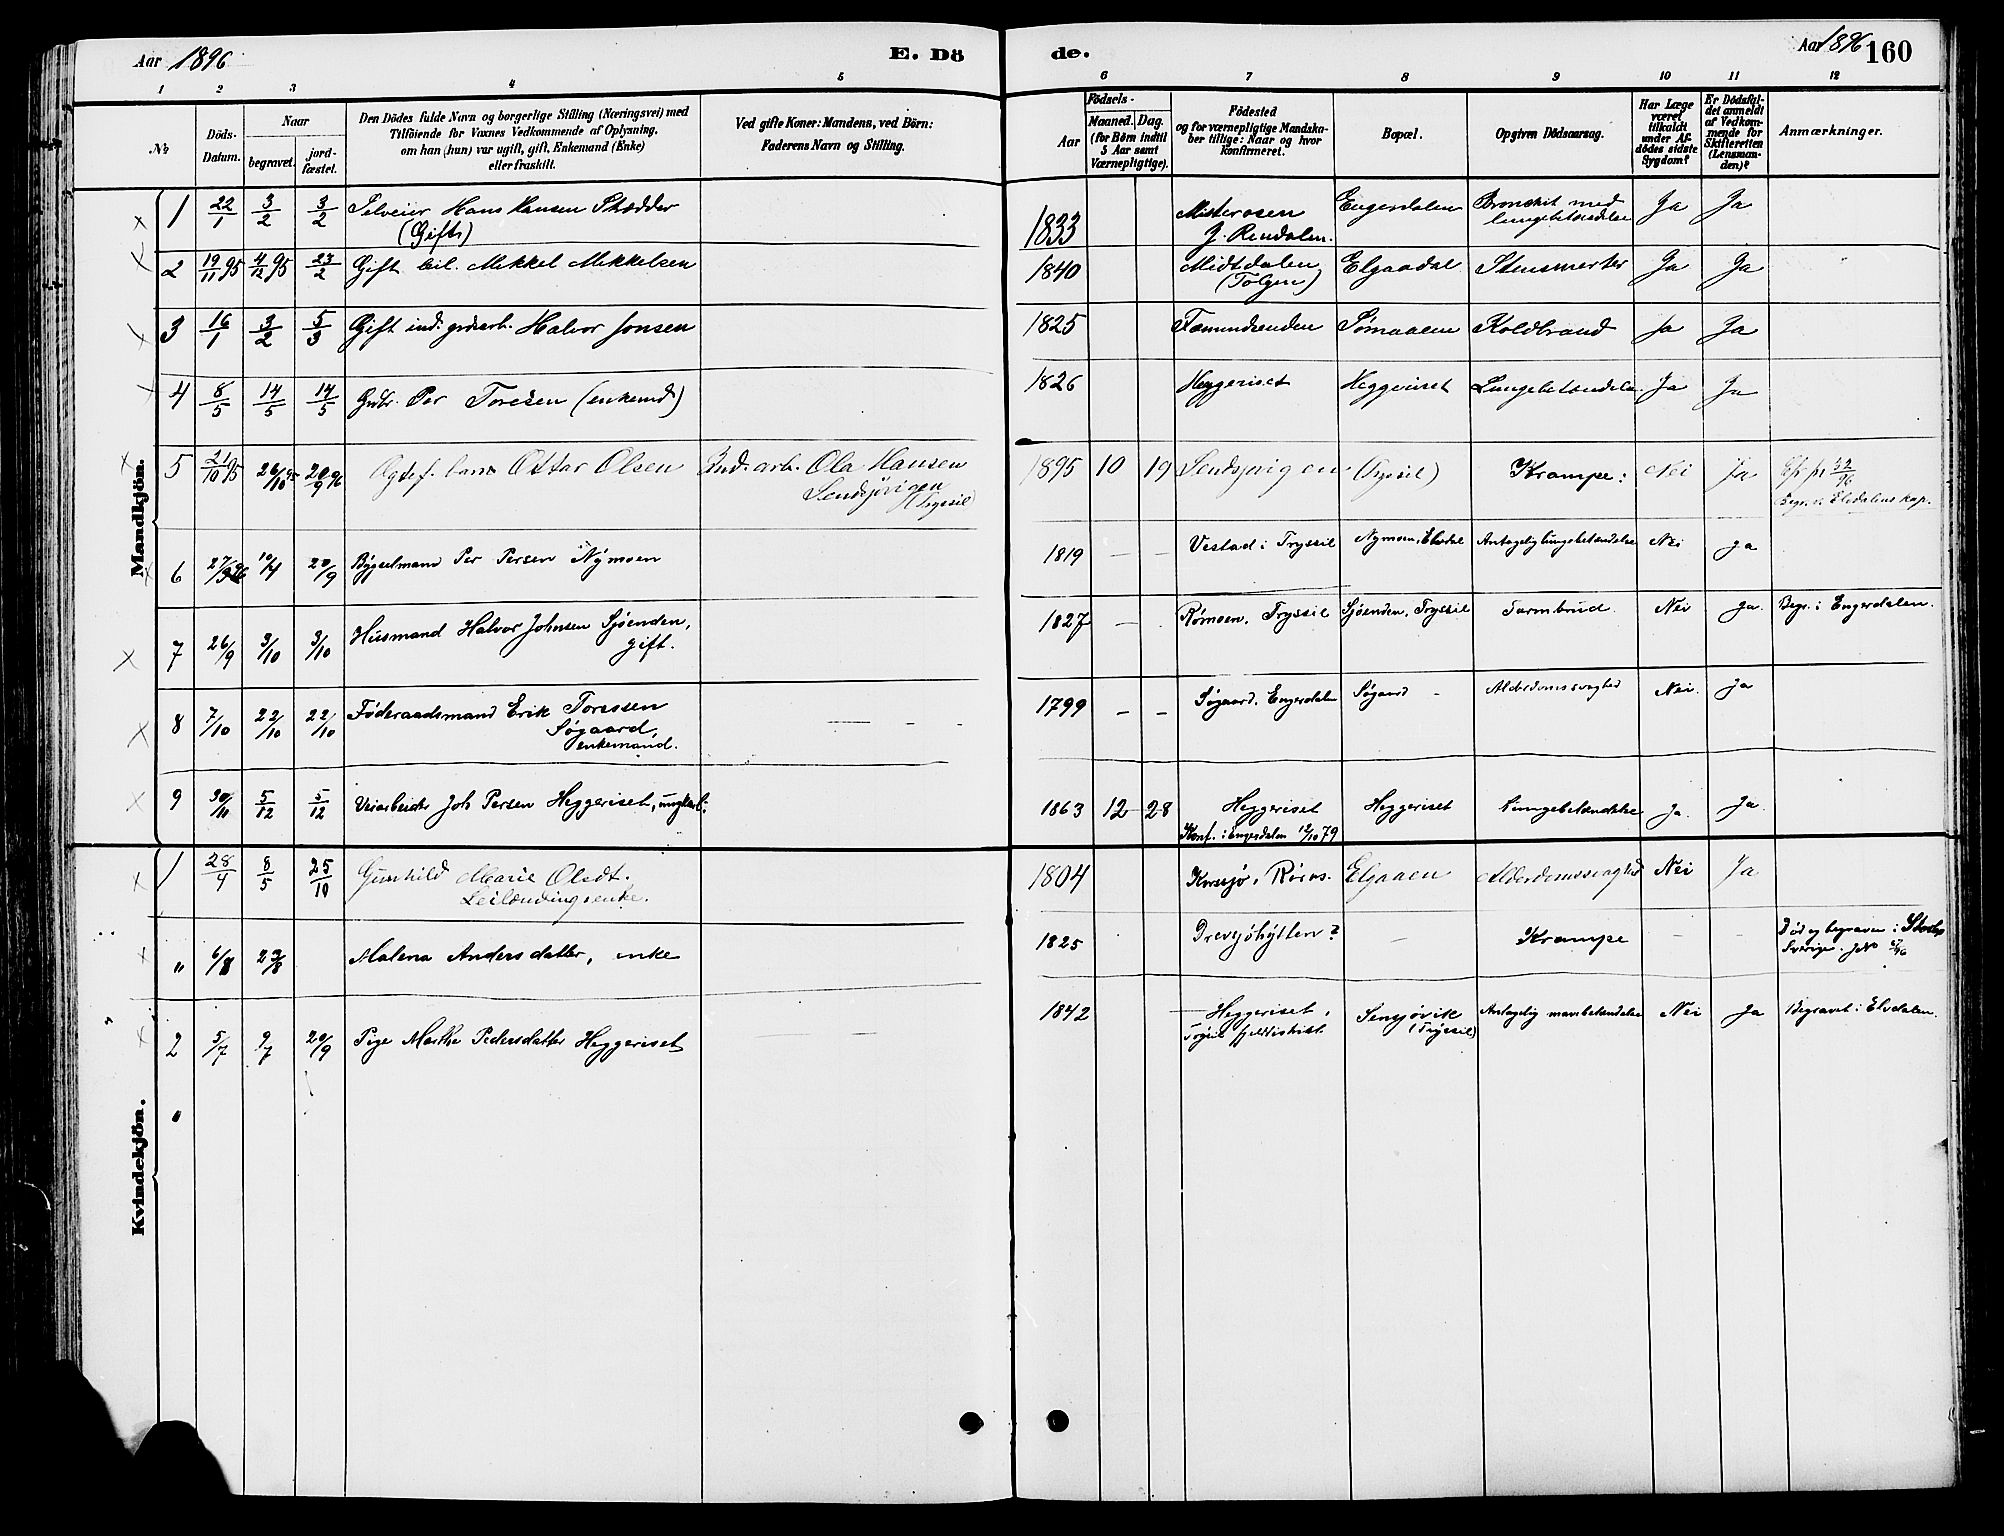 Aar 1896
E. Dö
de.
Aar 1896
160
1 2 3 4 5 6 7 8 9 10 11 12
№
Döds-
Datum.
Naar
begravet.
jord-
fæstet.
Den Dödes fulde Navn og borgerlige Stilling (Næringsvei) med
Tilföiende for Voxnes Vedkommende af Oplysning,
om han (hun) var ugift, gift, Enkemand (Enke)
eller fraskilt.
Ved gifte Koner: Mandens, ved Börn:
Faderens Navn og Stilling.
Födsels-
Aar
Maaned. Dag.
(for Börn indtil
5 Aar samt
Værnepligtige).
Födested
og for værnepligtige Mandska-
ber tillige: Naar og hvor
konfirmeret.
Bopæl.
Opgiven Dödsaarsag.
Har Læge
været
tilkaldt
under Af-
dödes sidste
Sygdom?
Er Dödsfal-
det anmeldt
af Vedkom-
mende for
Skifteretten
(Lensman-
den)?
Anmærkninger.
Mandkjön.
1 22/1 3/2 3/2 Selveier Hans Hansen Skædder 1833 Misterosen Engerdalen Bronchit med Ja Ja
(Gift) Y. Rendalen. lungebetændelse
2 19/11 95 4/12 95 23/2 Gift Mikkel Mikkelsen 1840 Midtdalen Elgaadal Stensmerter Ja Ja
(Tolgen)
3 16/1 3/2 5/3 Gift ind. grdarb. Halvor Jonsen 1825 Fæmundsenden Sømaaen Koldbrand Ja Ja
4 8/5 14/5 14/5 Grdbr. Per Toresen (enkemd) 1826 Heggeriset Heggeriset Lungebetændelse Ja Ja
5 21/10 95 26/10 95 20/9 96 Ægtef. barn Ottar Olsen Ind. arb. Ola Hansen 1895 10 19 Sendsjøvigen (Trysil) Krampe: Nei Ja
Sendsjøvigen
(Trysil) Begr. v. Elvdalens kap.
6 27/3 96 10/4 20/9 Bygselmand Per Persen Nymoen 1819 — — Vestad i Tryssil Nymoen, Elvdal Antagelig lungebetændelse Nei Ja
7 26/9 3/10 3/10 Husmand Halvor Johnsen Sjøenden, 1827 — Rømoen, Tryssil Sjøenden, Tryssil Tarmbrud. Nei Ja. Begr. i Engerdalen.
gift.
8 7/10 22/10 22/10 Føderaadsmand Erik Toressen 1799 — — Søgaard, Engerdalen Søgaard Alderdomssvaghed Nei. Ja
Søgaard,
enkemand.
9 30/11 5/12 5/12 Veiarbeider Joh Persen Heggeriset, ungkarl. 1863 12 28 Heggeriset Heggeriset Lungebetændelse Ja. Ja.
Konf. i Engerdalen 12/10 79
Kvindekjön.
1 28/4 8/5 25/10 Gunhild Marie Olsdt. 1804 Korssjø, Røros. Elgaaen Alderdomssvaghed Nei Ja
Leilændingsenke.
" 6/8 Malena Andersdatter, enke 1825 Drevsjøhytten? — Krampe — — Død og begraven i
Sverige.
2 5/7 9/7 20/9 Pige Marthe Pedersdatter Heggeriset — 1842 Heggeriset, Sensjøvik Antagelig mavebetændelse Nei Ja Begravet i Elvdalen.
(Tryssil)
"